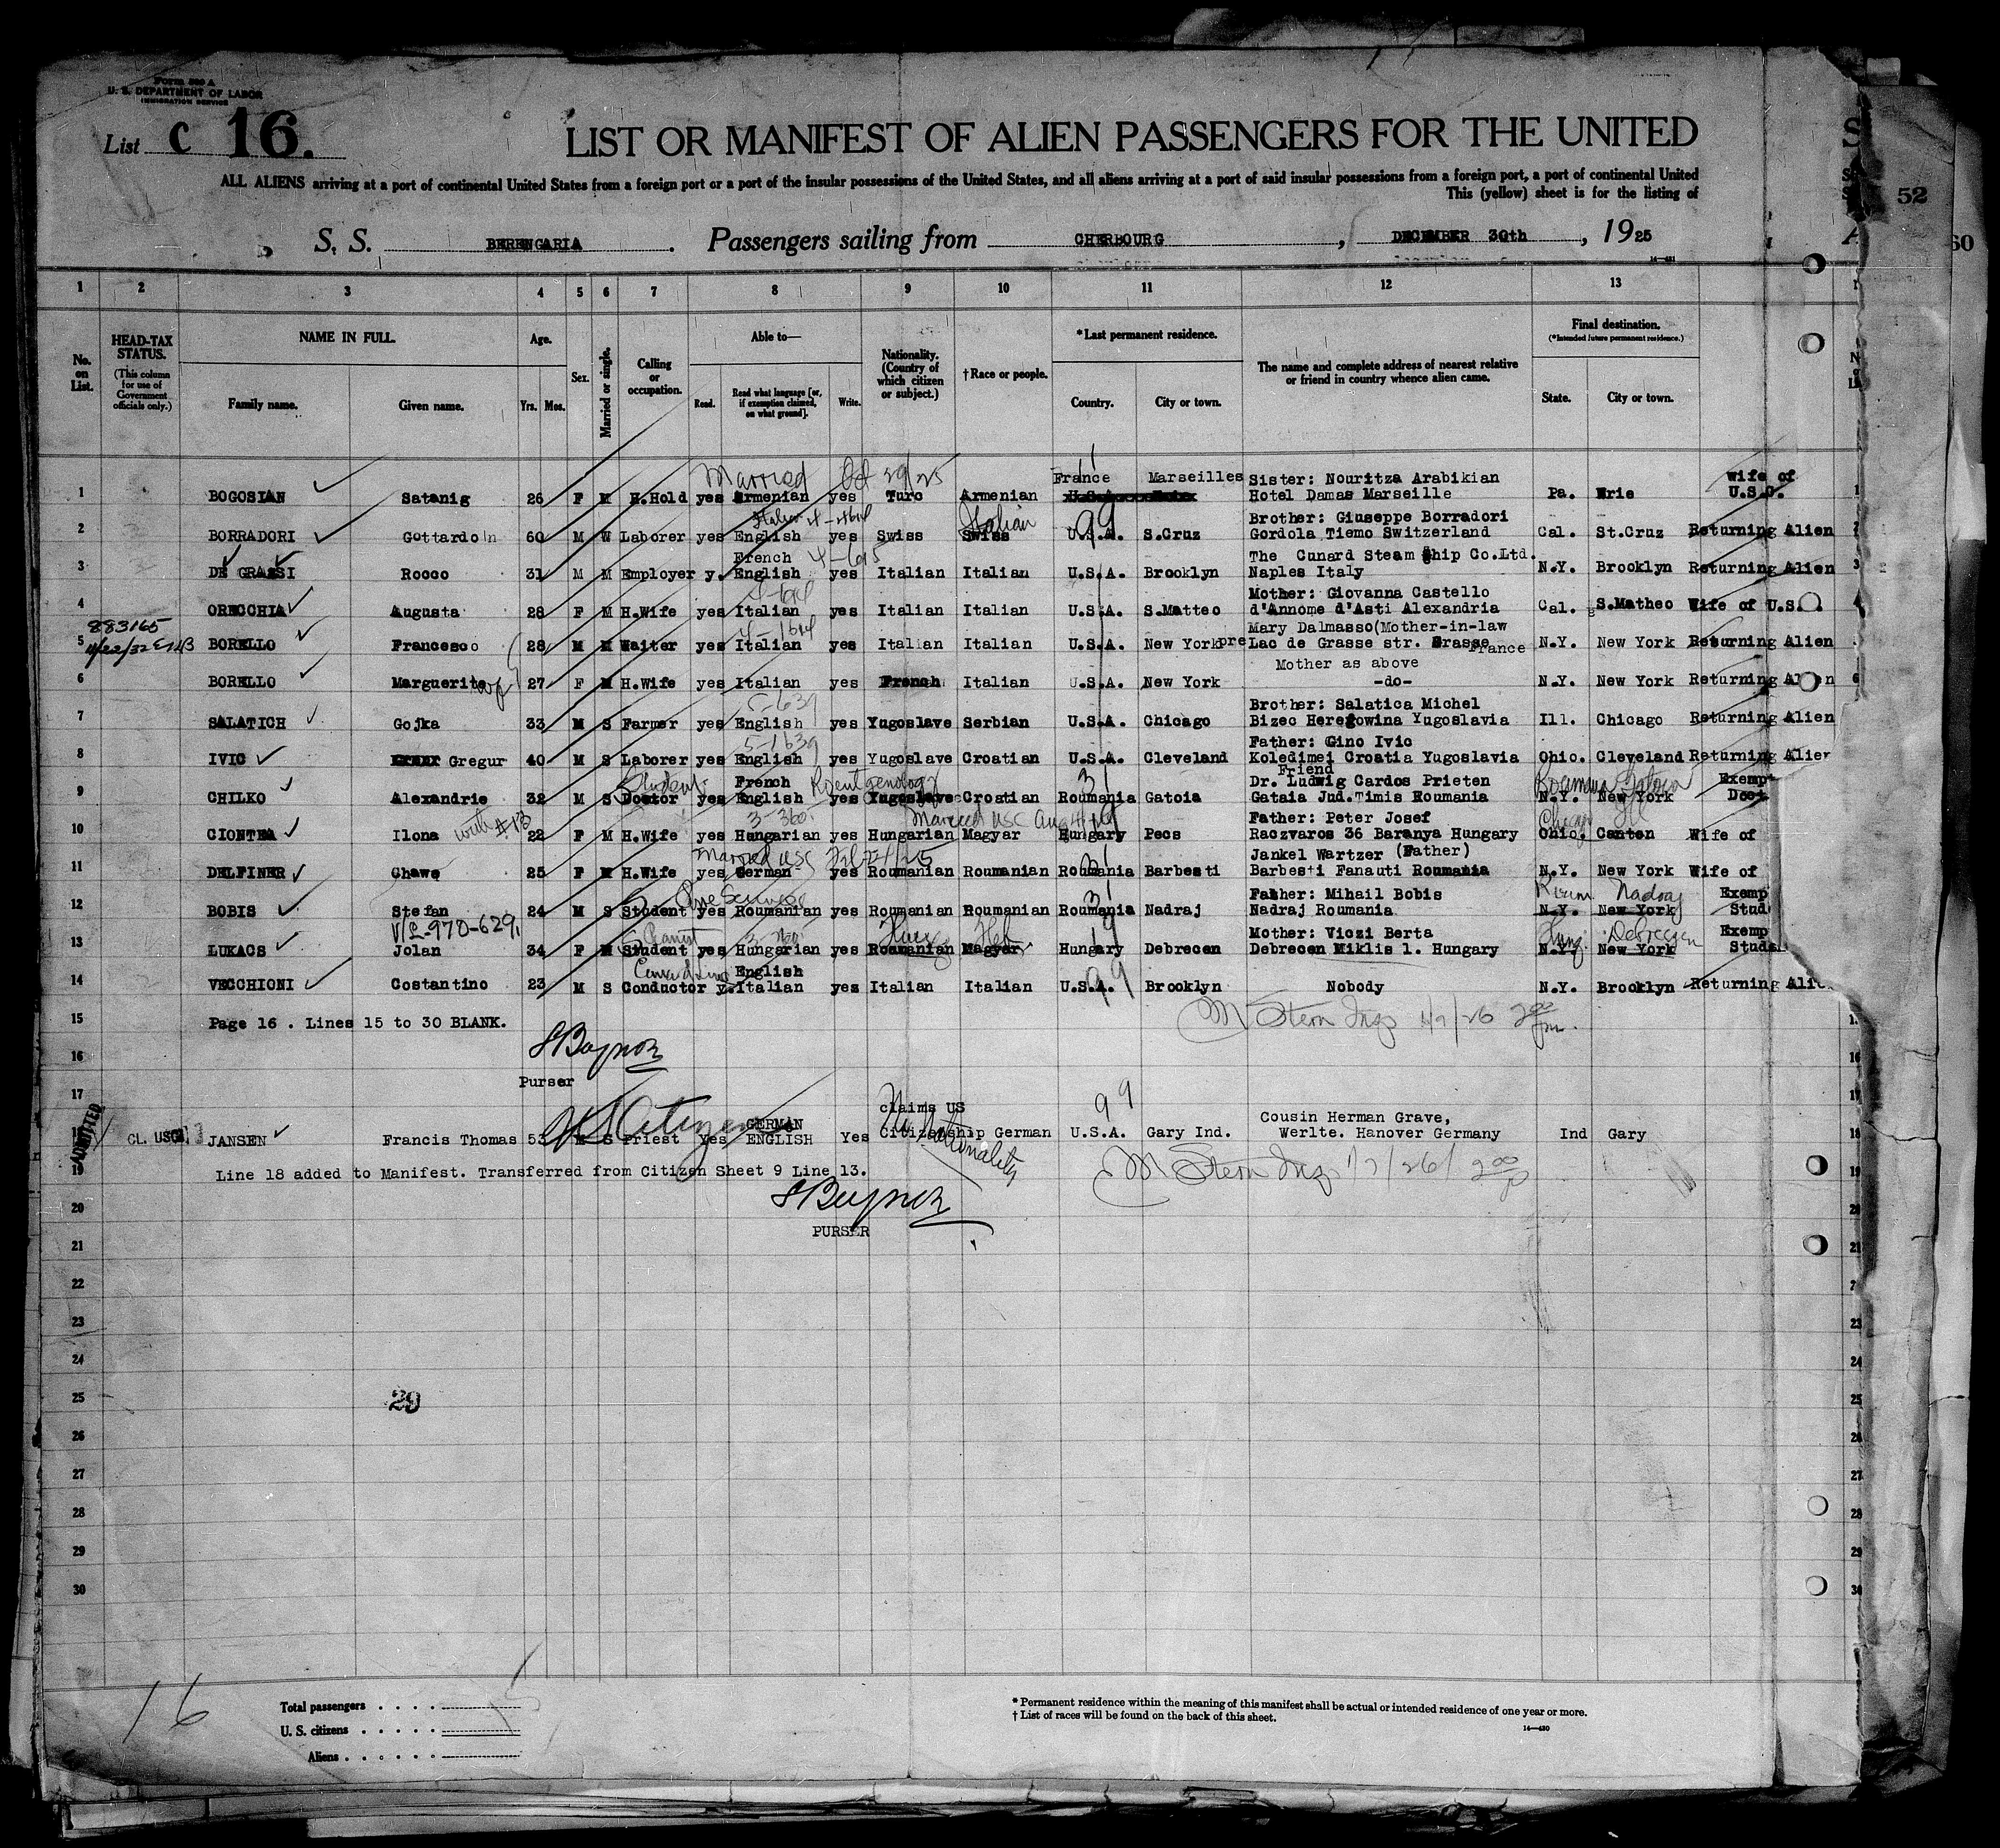 Form 500 A
U. S. DEPARTMENT OF LABOR
IMMIGRATION SERVICE
List C 16.
LIST OR MANIFEST OF ALIEN PASSENGERS FOR THE UNITED
ALL ALIENS arriving at a port of continental United States from a foreign port or a port of the insular possessions of the United States, and all aliens arriving at a port of said insular possessions from a foreign port, a port of continental United
This (yellow) sheet is for the listing of
52
60
S. S. BERENGARIA. Passengers sailing from CHERBOURG, DECEMBER 30th, 1925
1 2 3 4 5 6 7 8 9 10 11 12 13
No. on List.
HEAD-TAX STATUS.
(This column for use of Government officials only.)
NAME IN FULL.
Family name. Given name.
Age.
Yrs. Mos.
Sex.
Married or single.
Calling or occupation.
Able to—
Read. Read what language [or, if exemption claimed, on what ground]. Write.
Nationality. (Country of which citizen or subject.)
†Race or people.
*Last permanent residence.
Country. City or town.
The name and complete address of nearest relative or friend in country whence alien came.
Final destination.
(*Intended future permanent residence.)
State. City or town.
Married Oct 29/25 France Marseilles Sister: Nouritza Arabikian wife of
1 BOGOSIAN Satanig 26 F M H.Hold yes Armenian yes Turc Armenian U.S.A. Hotel Damas Marseille Pa. Erie U.S.C.
Italian Italian Brother: Giuseppe Borradori
2 BORRADORI Gottardo 60 M W Laborer yes English yes Swiss Swiss U.S.A. S.Cruz Gordola Tiemo Switzerland Cal. St.Cruz Returning Alien
French 4-695 The Cunard Steam Ship Co.Ltd.
3 DE GRASSI Rocco 31 M M Employer y. English yes Italian Italian U.S.A. Brooklyn Naples Italy N.Y. Brooklyn Returning Alien
Mother: Giovanna Castello
4 ORECCHIA Augusta 28 F M H.Wife yes Italian yes Italian Italian U.S.A. S.Matteo d'Annome d'Asti Alexandria Cal. S.Matheo Wife of U.S.
883165 Mary Dalmasso(Mother-in-law
5 BORELLO Francesco 28 M M Waiter yes Italian yes Italian Italian U.S.A. New York pre Lac de Grasse str. Grasse France N.Y. New York Returning Alien
Mother as above
6 BORELLO Marguerite wf 27 F M H.Wife yes Italian yes French Italian U.S.A. New York -do- N.Y. New York Returning Alien
5-639 Brother: Salatica Michel
7 SALATICH Gojka 33 M S Farmer yes English yes Yugoslave Serbian U.S.A. Chicago Bizec Heregowina Yugoslavia Ill. Chicago Returning Alien
5-1639 Father: Gino Ivic
8 IVIC Gregur 40 M S Laborer yes English yes Yugoslave Croatian U.S.A. Cleveland Koledimei Croatia Yugoslavia Ohio. Cleveland Returning Alien
Student French Roentgenology 31 Friend Dr. Ludwig Cardos Prieten Roumania Gatoia Exemp
9 CHILKO Alexandrie 32 M S Doctor yes English yes Yugoslave Croatian Roumania Gatoia Gataia Jud.Timis Roumania N.Y. New York Doct
3-360. Married USC Father: Peter Josef Chicago Ill
10 CIONTEA Ilona with #13 22 F M H.Wife yes Hungarian yes Hungarian Magyar Hungary Pecs Raczvaros 36 Baranya Hungary Ohio. Canton Wife of
Married USC 31 Jankel Wartzer (Father)
11 DELFINER Chawe 25 F M H.Wife yes German yes Roumanian Roumanian Roumania Barbesti Barbesti Fanauti Roumania N.Y. New York Wife of
31 Father: Mihail Bobis Roum Nadraj Exemp
12 BOBIS Stefan 24 M S Student yes Roumanian yes Roumanian Roumanian Roumania Nadraj Nadraj Roumania N.Y. New York Stud
V/L-970-629, Hung Heb 19 Mother: Viczi Berta Hung Debreczen Exemp
13 LUKACS Jolan 34 F M Student yes Hungarian yes Roumanian Magyar Hungary Debrecen Debrecen Miklis 1. Hungary N.Y. New York Stude
English 99
14 VECCHIONI Costantino 23 M S Conductor y. Italian yes Italian Italian U.S.A. Brooklyn Nobody N.Y. Brooklyn Returning Alie
15 Page 16 . Lines 15 to 30 BLANK. M Stern Insp 1/7/26 2 00 pm.
16 SBoynon
Purser
17 US Citizen GERMAN claims US No Nationality 99 Cousin Herman Grave,
ADMITTED
18 CL. USC JANSEN Francis Thomas 53 M S Priest Yes ENGLISH Yes Citizenship German U.S.A. Gary Ind. Werlte. Hanover Germany Ind Gary
19 Line 18 added to Manifest. Transferred from Citizen Sheet 9 Line 13. M Stern Insp 1/7/26 2 00 p
20 SBoynon
PURSER
21
22
23
24
25 29
26
27
28
29
30
16
Total passengers
U. S. citizens
Aliens
* Permanent residence within the meaning of this manifest shall be actual or intended residence of one year or more.
† List of races will be found on the back of this sheet.
14—430